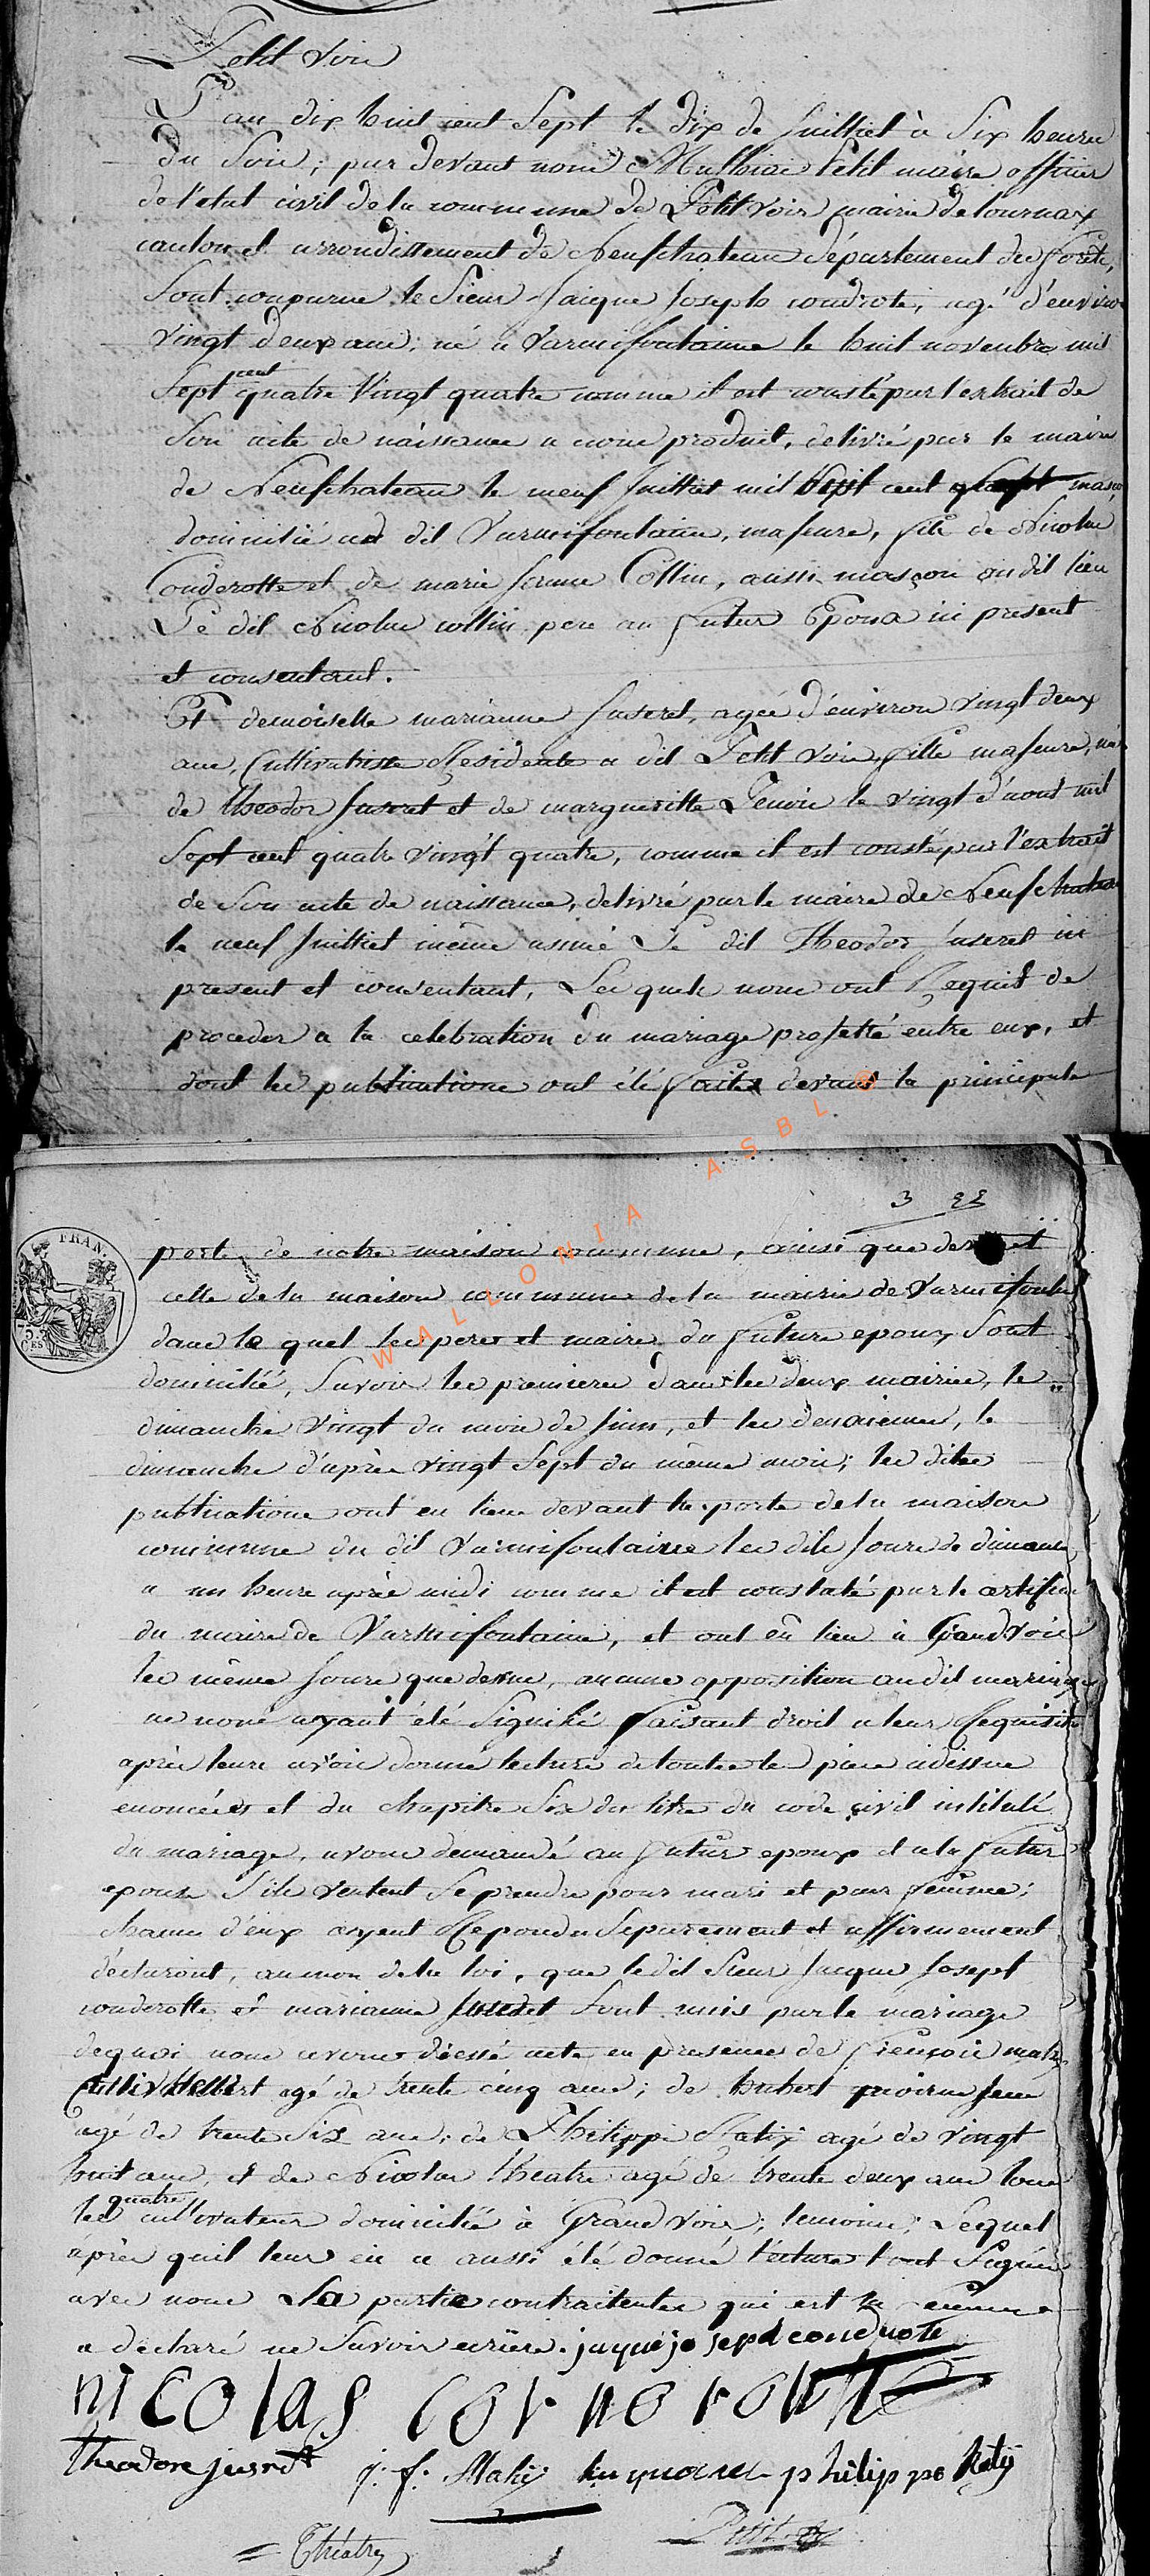 Petit Voir
L'an dix huit cent Sept le dix de Juilliet à Six heures
du Soir; par devant nous Mathias Petit maire officier
de l'état civil de la commune de Petit voir mairie de tournay
canton et arrondissement de Neufchateau département des forêts,
Sont comparus le Sieur Jaique Joseph condrote, agé d'environ
vingt deux ans; né a Varmifontaine le huit novembre mil
Sept cent quatre Vingt quatre comme il est consté par l'extrait de
Son acte de naissance a nous produit, delivré par le maire
de Neufchateau le neuf Juilliet mil cent masson
domicilié au dit Varmifontaine, majeure, fils de Nicolas
Conderotte et de marie Jeanne Collin, aussi masçon audit lieu
Le dit Nicolas collin pere au futur Epoux ici present
et consentant.
Et demoiselle marianne Juseret, agée d'environ vingt deux
ans, Cultivatrice Residente a dit Petit Voir fille majeure, née
de Theodor Juseret et de margueritte le vingt d'aout mil
Sept cent quatre vingt quatre, comme il est consté par l'extrait
de Son acte de naissance, delivré par le maire de Neufchateau
le neuf Juilliet même année Le dit Theodor Juseret ici
present et consentant, Les quels nous ont Requit de
proceder a la celebration du mariage projetté entre eux, et
dont les publications ont été faites devant la principale
WALLONIA ASBL ®
3 22
FRAN.
75 CES
porte de notre maison commune, ainsi que devant
celle de la maison commune de la mairie de Varmifontaine
dans le quel les peres et maire du future epoux Sont
domicilié, Savoir les premieres dans les deux mairies, le
dimanche vingt du mois de Juin, et les deuxiemes, le
dimanche d'après vingt Sept du même mois; les dites
publications ont eu lieu devant la porte de la maison
commune du dit Varmifontaines les dits Jours de dimanche
a un heure après midi comme il est constaté par le certificat
du maire de Varmifontaine, et ont eû lieu à Grand Voir
les même Jours que dessus, aucune opposition audit mariage
ne nous ayant été Signifié faisant droit a leur Requisition
après leurs avoir donné lecture de toutes les pieces cidessus
enoncées et du chapitre Six du titre du code civil intitulé
du mariage, avons demandé au futur epoux et a la futur
epouse S'ils veulent Se prendre pour mari et pour femme;
chacun d'eux ayent Repondu Séparement et affirmement
déclaront, au nom de la loi, que le dit Sieur Jacque Josept
conderotte et marianne Juseret Sont unis par le mariage
dequoi nous avons dressé acte en presence de françois mahy
agé de trente cinq ans; de hubert
agé de trente Six ans; de Philippe Raty agé de vingt
huit ans, et de Nicolas theatre agé de trente deux ans tous
les quatre cultivateurs domicilié à Grand Voir, temoins; Lequel
après quil leurs en a aussi été donné lecture l'ont Signés
avec nous La partie contraitentes qui est la femme
a déclaré ne Savoir ecrire. jaque josepd conduote
nicolas cornorotte
theadore jusret j. f. Mahij philippe Ratij
Théatre Petit